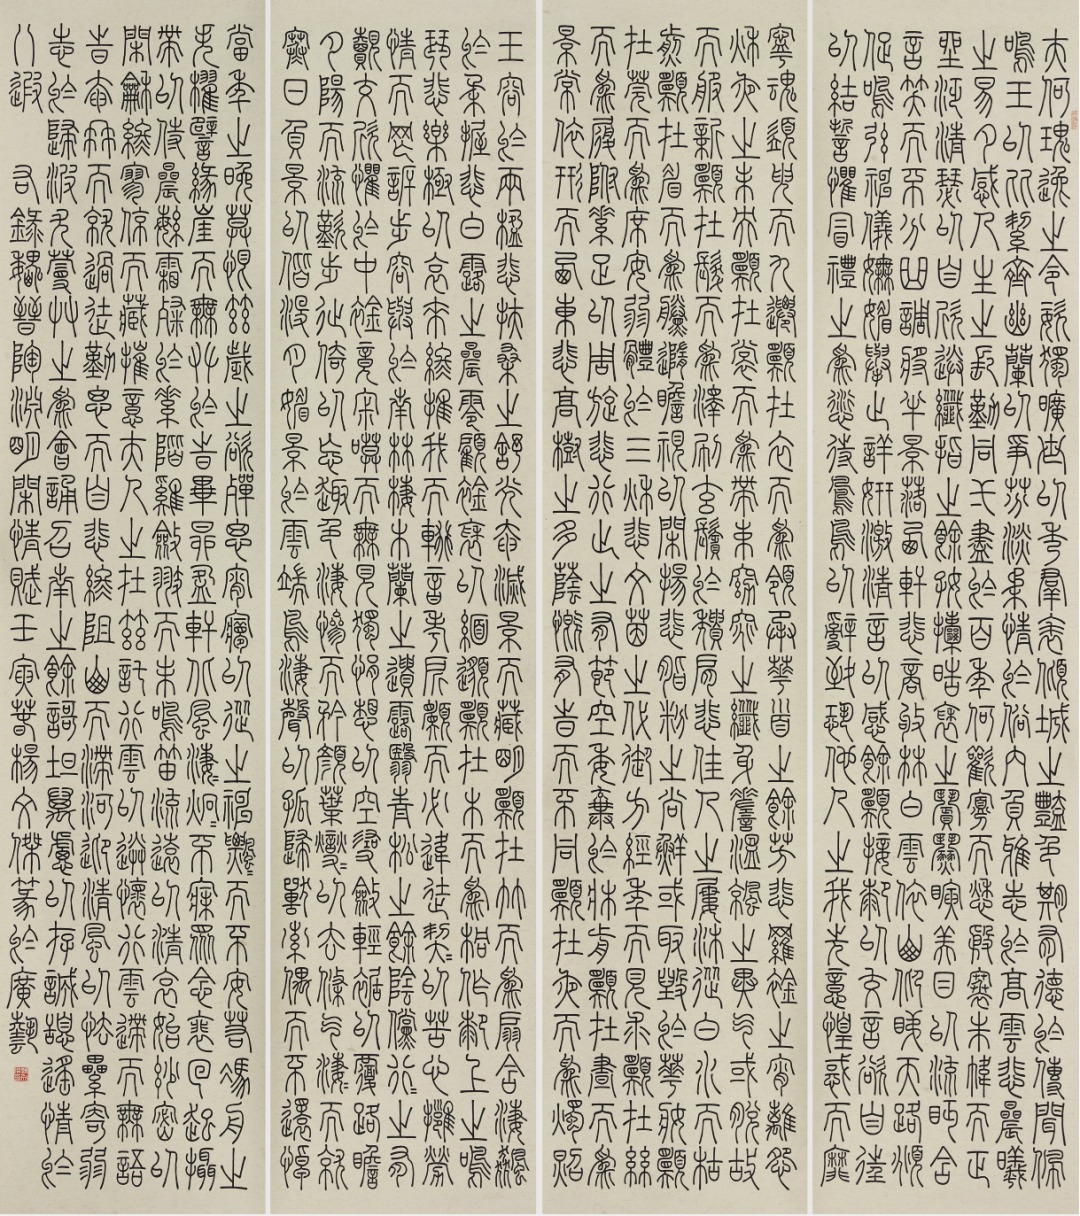 夫何瑰逸之令姿獨曠世以秀羣表傾城之豔色期有德於傳聞佩
鳴玉以比潔齊幽蘭以爭芬淡柔情於俗內負雅志於高雲悲晨曦
之易夕感人生之長勤同一盡於百年何歡寡而愁殷褰朱幃而正
坐泛清瑟以自欣送纖指之餘好攘皓袖之繽紛瞬美目以流眄含
言笑而不分曲調將半景落西軒悲商叩林白雲依山仰睇天路俯
促鳴弦神儀嫵媚舉止詳妍激清音以感余願接膝以交言欲自往
以結誓懼冒禮之為愆待鳳鳥以辭致恐他人之我先意惶惑而靡
寧魂須臾而九遷願在衣而為領承華首之餘芳悲羅襟之宵離怨
秋夜之未央願在裳而為帶束窈窕之纖身嗟溫涼之異氣或脫故
而服新願在髮而為澤刷玄鬢於頹肩悲佳人之屢沐從白水而枯
煎願在眉而為黛隨瞻視以閒揚悲脂粉之尚鮮或取毀於華妝願
在莞而為席安弱體於三秋悲文茵之代御方經年而見求願在絲
而為履附素足以周旋悲行止之有節空委棄於牀前願在晝而為
景常依形而西東悲高樹之多蔭慨有時而不同願在夜而為燭照
玉容於兩楹悲扶桑之舒光奄滅景而藏明願在竹而為扇含淒飆
於柔握悲白露之晨零顧襟袖以緬邈願在木而為桐作膝上之鳴
琴悲樂極以哀來終推我而輟音考所願而必違徒契契以苦心擁勞
情而罔訴步容與於南林棲木蘭之遺露翳青松之餘陰儻行行之有
覿交欣懼於中襟竟寂寞而無見獨悁想以空尋斂輕裾以復路瞻
夕陽而流歎步徙倚以忘趣色淒慘而矜顏葉燮燮以去條氣淒淒而就
寒日負景以偕沒月媚景於雲端鳥淒聲以孤歸獸索偶而不還悼
當年之晚暮恨茲歲之欲殫思宵夢以從之神飄颻而不安若憑舟之
失櫂譬緣崖而無攀於時畢昴盈軒北風淒淒炯炯不寐眾念徘徊起攝
帶以伺晨繁霜粲於素階雞斂翅而未鳴笛流遠以清哀始妙密以
閑和終寥亮而藏摧意夫人之在茲託行雲以送懷行雲逝而無語
時奄冉而就過徒勤思而自悲終阻山而滯河迎清風以祛累寄弱
志於歸波尤蔓草之為會誦召南之餘歌坦萬慮以存誠憩遙情於
八遐 右錄魏晉陶淵明閑情賦壬寅春楊文傑篆於廣藝